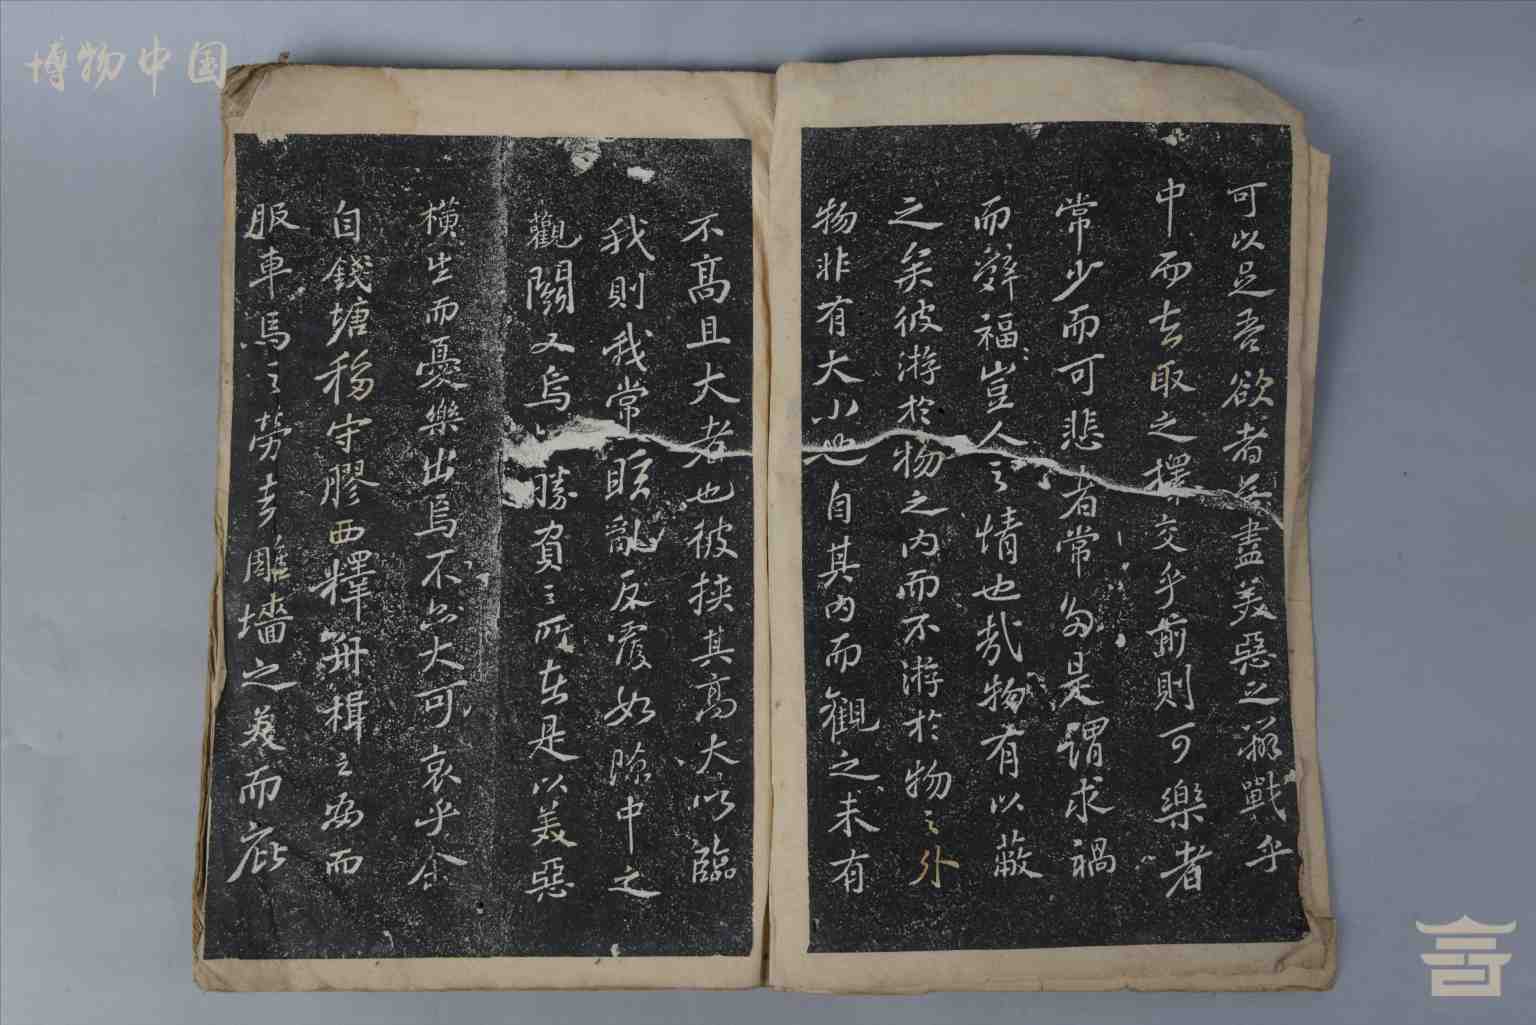 博物中国
可以足吾欲者有盡美惡之辨戰乎
中而去取之擇交乎前則可樂者
常少而可悲者常多是謂求禍
而辭福豈人之情也哉物有以蔽
之矣彼游於物之内而不游於物之外
物非有大小也自其内而觀之未有
不高且大者也彼挾其高大以臨
我則我常眩亂反覆如隙中之
觀鬭又烏勝負之所在是以美惡
橫生而憂樂出焉不亦大可哀乎余
自錢塘移守膠西釋舟楫之安而
服車馬之勞去雕墻之美而庇